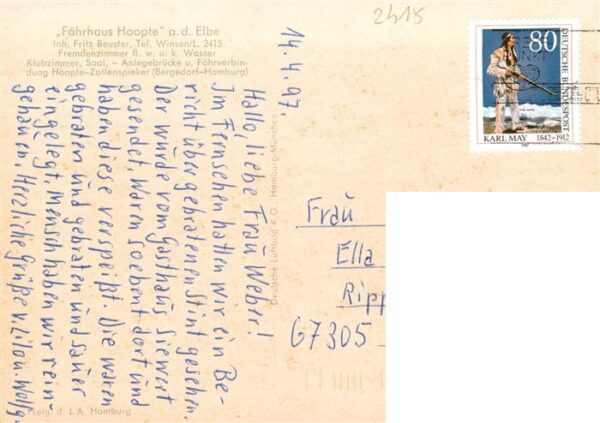 2415
„Fährhaus Hoopte" a. d. Elbe
Inh. Fritz Beuster, Tel. Winsen/L. 2415
Fremdenzimmer fl. w. u. k. Wasser
Klubzimmer, Saal, – Anlegebrücke u. Fährverbin-
dung Hoopte-Zollenspieker (Bergedorf-Hamburg)
14.4.97.
Hallo, liebe Frau Weber!
Im Fernsehen hatten wir ein Be-
richt über gebratenen Stint gesehen.
Der wurde vom Gasthaus Siewert
gesendet. Waren soebent dort und
haben diese verspeißt. Die waren
gebraten und gebraten und sauer
eingelegt. Mensch haben wir rein-
gehauen. Herzliche Grüße v. Lilo u. Wolfg.
Deutsche Luftbild K G., Hamburg-München
Freig. d. L.A. Hamburg
80
DEUTSCHE BUNDESPOST
KARL MAY 1842-1912
Frau
Ella
Ripp
67305